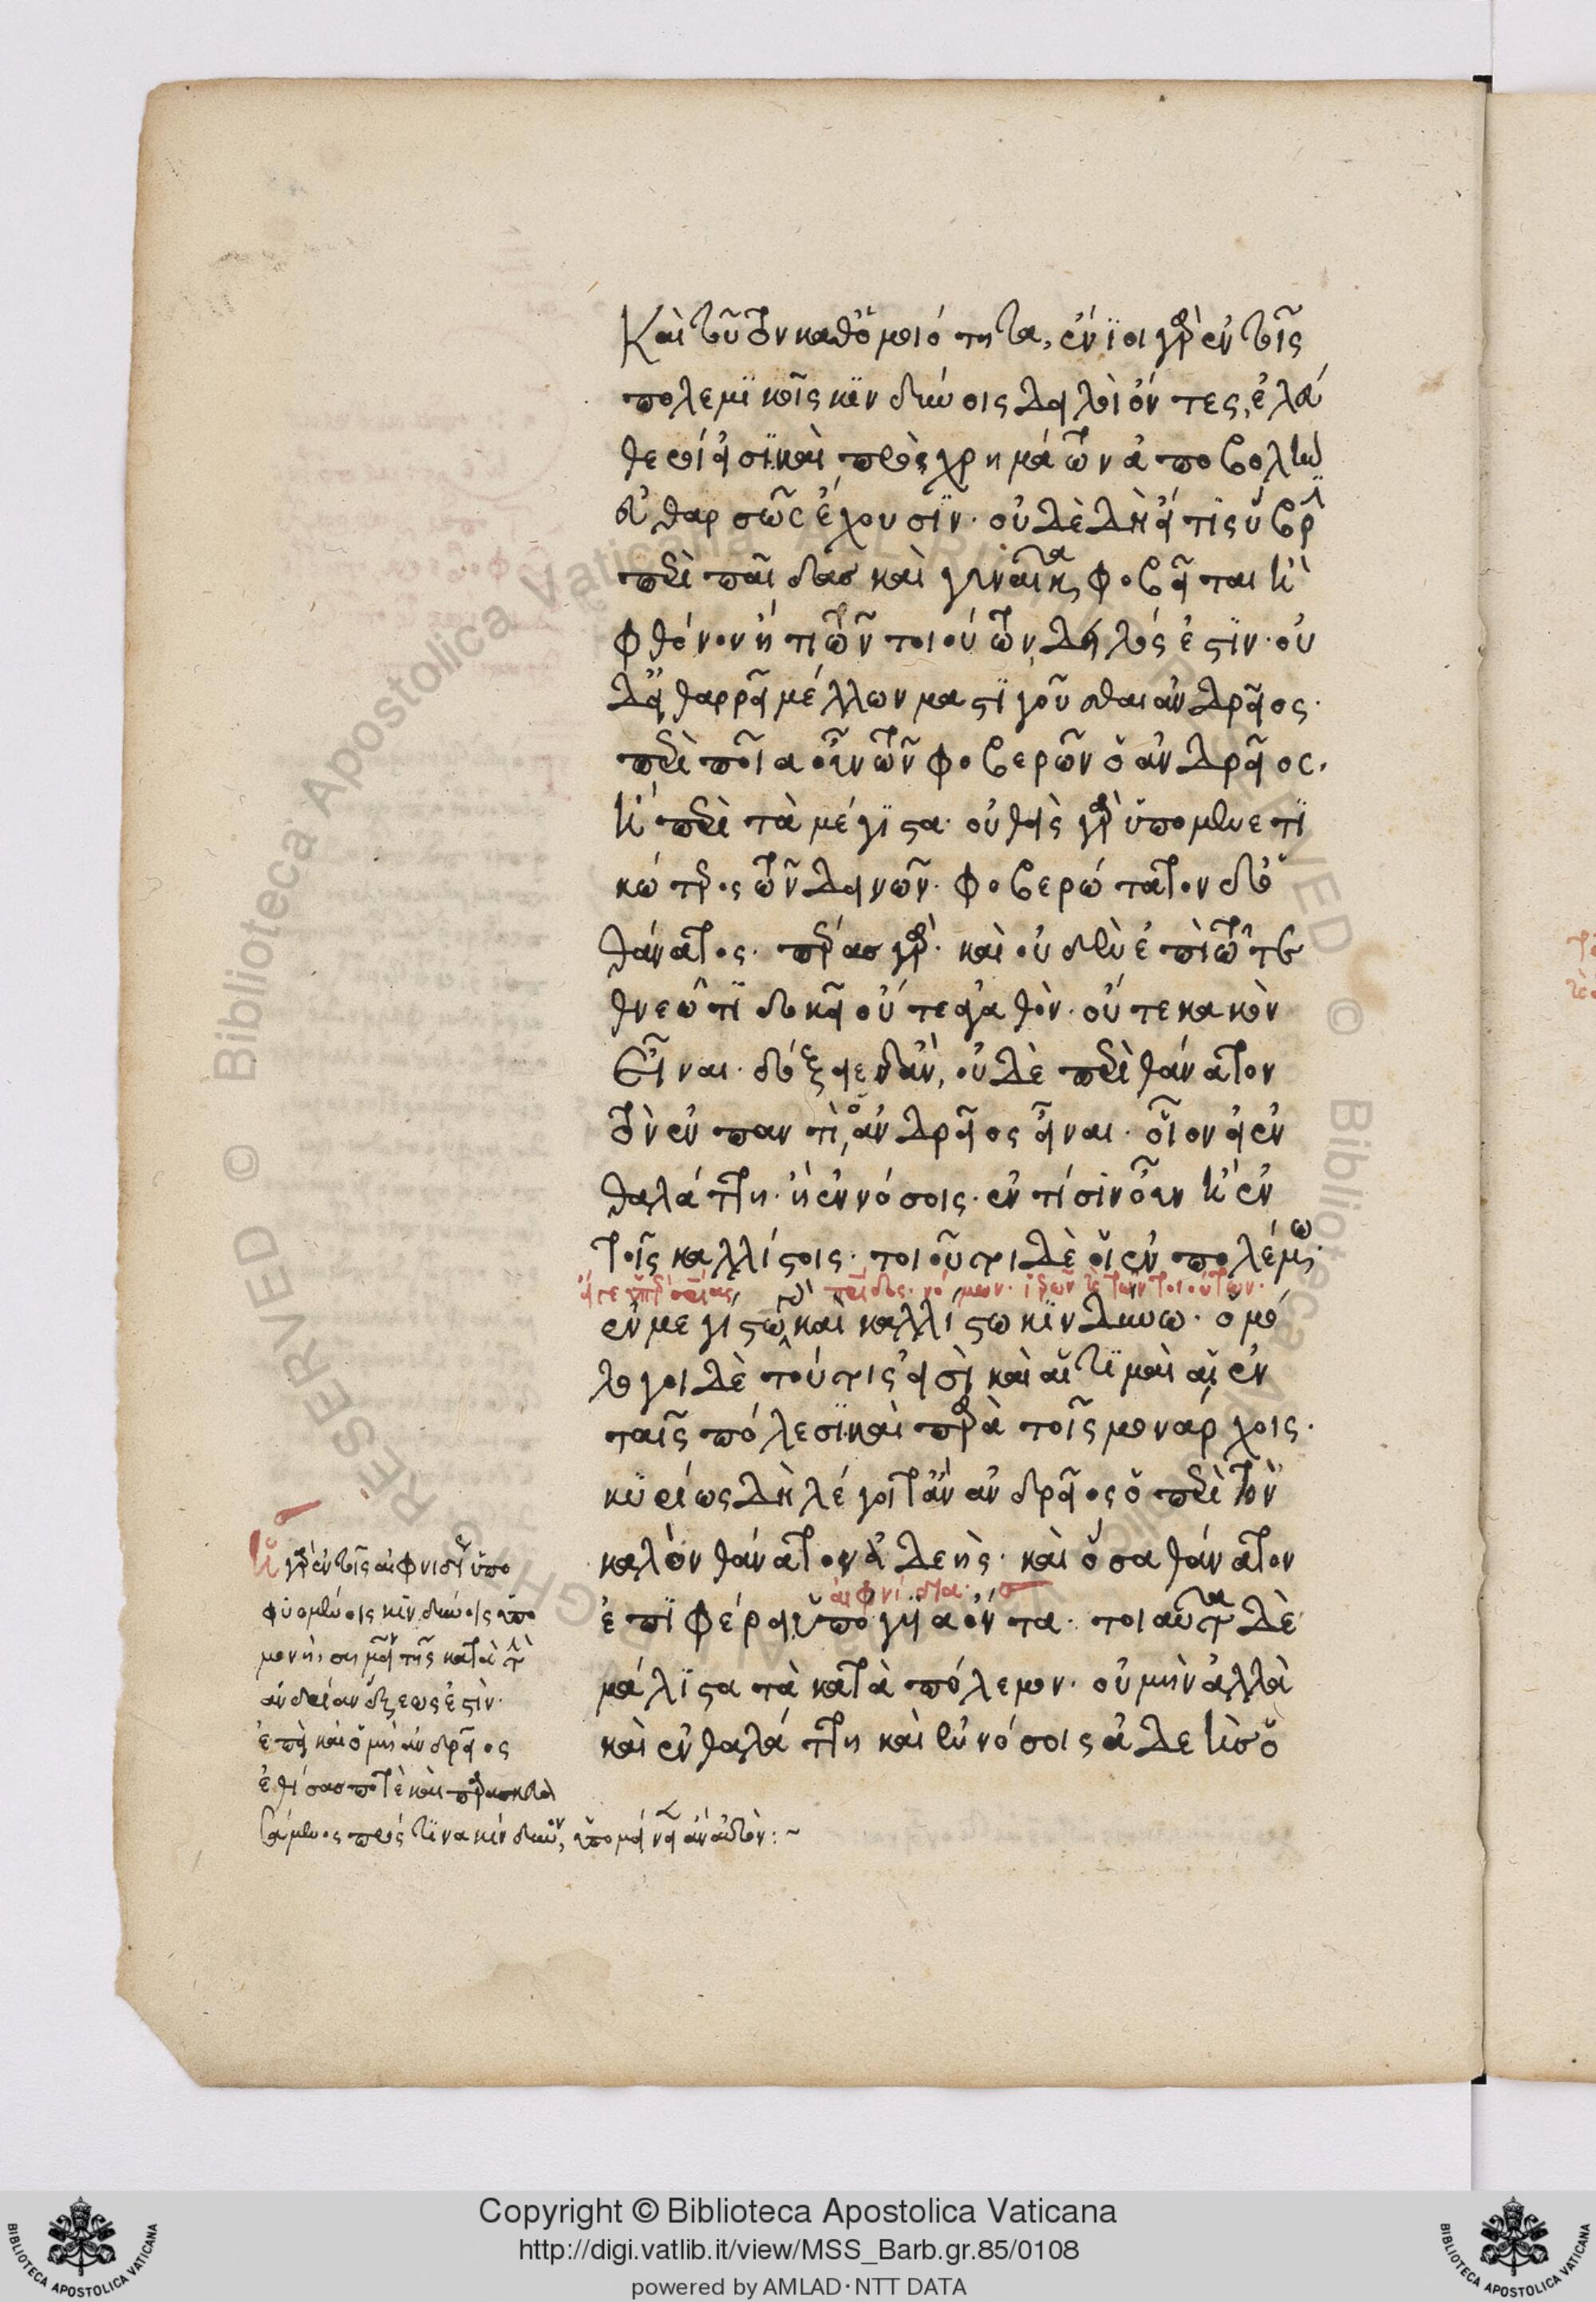 Καὶ τοῦτον καθ' ὁμοιότητα, ἔνιοι γὰρ ἐν τοῖς
πολεμικοῖς κινδύνοις δειλοὶ ὄντες, ἐλευ
θέριοί εἰσι· καὶ πρὸς χρημάτων ἀποβολὴν
εὐθαρσῶς ἔχουσιν· οὐδὲ δὴ εἴ τις ὕβριν
περὶ παῖδας καὶ γυναῖκα φοβεῖται ἢ
φθόνον ἤ τι τῶν τοιούτων, δειλός ἐστιν· οὐ
δ' εἰ θαρρεῖ μέλλων μαστιγοῦσθαι ἀνδρεῖος·
περὶ ποῖα οὖν τῶν φοβερῶν ὁ ἀνδρεῖος.
ἢ περὶ τὰ μέγιστα· οὐθεὶς γὰρ ὑπομενετι
κώτερος τῶν δεινῶν· φοβερώτατον δ' ὁ
θάνατος· πέρας γάρ· καὶ οὐδὲν ἔτι τῷ τε
θνεῶτι δοκεῖ οὔτε ἀγαθὸν· οὔτε κακὸν
εἶναι· δόξειε δ' ἂν, οὐδὲ περὶ θάνατον
τὸν ἐν παντὶ, ὁ ἀνδρεῖος εἶναι· οἷον εἰ ἐν
θαλάττῃ· ἢ ἐν νόσοις· ἐν τίσιν οὖν ἢ ἐν
τοῖς καλλίστοις· τοιοῦτοι δὲ οἱ ἐν πολέμῳ·
ἐν μεγίστω καὶ καλλίστω κινδύνω· ὁμό
λογοι δὲ τούτοις εἰσὶ καὶ αἱ τιμαὶ αἱ ἐν
ταῖς πόλεσι· καὶ παρὰ τοῖς μονάρχοις·
κυρίως δὴ λέγοιτ' ἂν ἀνδρεῖος ὁ περὶ τὸν
καλὸν θάνατον ἀδεής· καὶ ὅσα θάνατον
αἰφνίδια·
ἐπιφέρει ὑπόγυια ὄντα· τοιαῦτα δὲ
μάλιστα τὰ κατὰ πόλεμον· οὐ μὴν ἀλλὰ
καὶ ἐν θαλάττῃ καὶ ἐν νόσοις ἀδεὴς ὁ
γὰρ ἐν τοῖς αἰφνιδίοις ὑπο
φυομένοις κινδύνοις ὑπο
μονὴ, σημεῖον τῆς κατὰ τὴν
ἀνδρείαν ἕξεώς ἐστιν·
ἐπεὶ καὶ ὁ μὴ ἀνδρεῖος
ἐθίσας ποτὲ καὶ παρασκευα
σάμενος πρός τινα κίνδυνον, ὑπομείνειεν ἂν αὐτὸν:~
Copyright © Biblioteca Apostolica Vaticana
http://digi.vatlib.it/view/MSS_Barb.gr.85/0108
powered by AMLAD·NTT DATA